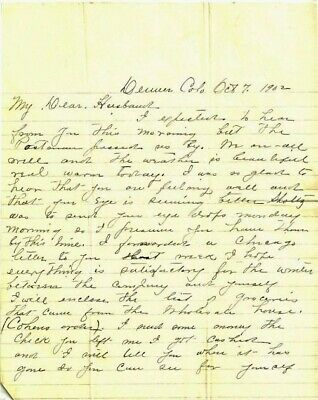 Denver Colo Oct 7. 1902
My Dear. Husband
I expected to hear
from you this morning but the
Postman passed us by. We are all
well and the weather is beautiful
real warm today. I was so glad to
hear that you are feeling well and
that your eye is seeming better
was to send you eye drops monday
morning so I presume you have them
by this time. I forwarded a Chicago
letter to you ward I hope
everything is satisfactory for the winter
between the Company and yourself
I will enclose the list of groceries
that came from the Wholesale house.
(Cohens order). I need some money the
Check you left me I got cashed
and I will tell you where it has
gone so you can see for yourself